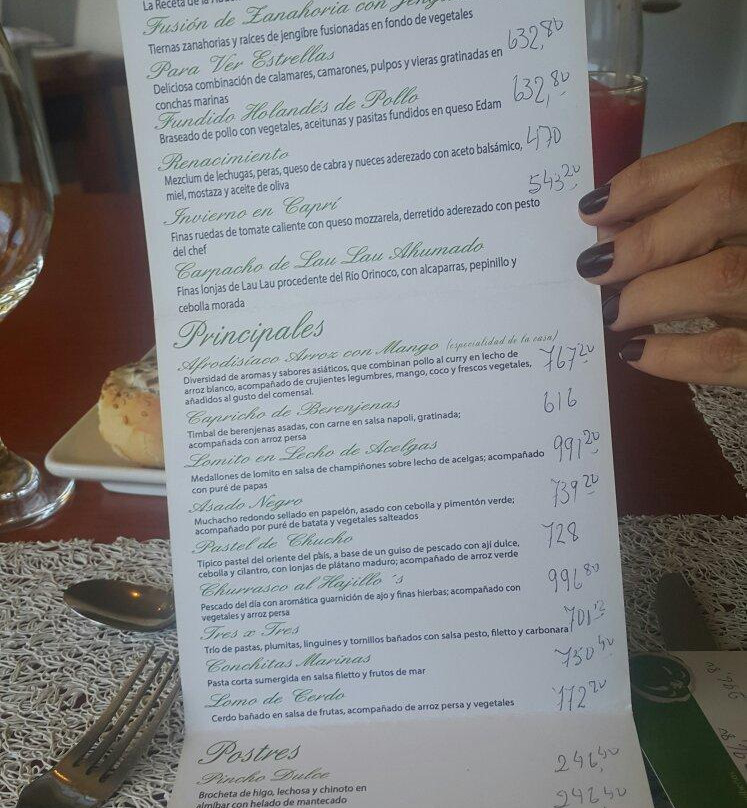 La Receta de la
Fusión de Zanahoria con
Tiernas zanahorias y raíces de jengibre fusionadas en fondo de vegetales
Para Ver Estrellas 632,80
Deliciosa combinación de calamares, camarones, pulpos y vieras gratinadas en
conchas marinas
Fundido Holandés de Pollo 632,80
Braseado de pollo con vegetales, aceitunas y pasitas fundidos en queso Edam
Renacimiento 470
Mezclum de lechugas, peras, queso de cabra y nueces aderezado con aceto balsámico,
miel, mostaza y aceite de oliva
Invierno en Caprí 543,20
Finas ruedas de tomate caliente con queso mozzarela, derretido aderezado con pesto
del chef
Carpacho de Lau Lau Ahumado
Finas lonjas de Lau Lau procedente del Río Orinoco, con alcaparras, pepinillo y
cebolla morada
Principales
Afrodisíaco Arroz con Mango (especialidad de la casa) 767,20
Diversidad de aromas y sabores asiáticos, que combinan pollo al curry en lecho de
arroz blanco, acompañado de crujientes legumbres, mango, coco y frescos vegetales,
añadidos al gusto del comensal.
Capricho de Berenjenas 616
Timbal de berenjenas asadas, con carne en salsa napoli, gratinada;
acompañada con arroz persa
Lomito en Lecho de Acelgas 991,20
Medallones de lomito en salsa de champiñones sobre lecho de acelgas; acompañado
con puré de papas
Asado Negro 739,20
Muchacho redondo sellado en papelón, asado con cebolla y pimentón verde;
acompañado por puré de batata y vegetales salteados
Pastel de Chucho 728
Típico pastel del oriente del país, a base de un guiso de pescado con ají dulce,
cebolla y cilantro, con lonjas de plátano maduro; acompañado de arroz verde
Churrasco al Hajillo´s 996,80
Pescado del día con aromática guarnición de ajo y finas hierbas; acompañado con
vegetales y arroz persa
Tres x Tres 701
Trio de pastas, plumitas, linguines y tornillos bañados con salsa pesto, filetto y carbonara
Conchitas Marinas 750,40
Pasta corta sumergida en salsa filetto y frutos de mar
Lomo de Cerdo 772,20
Cerdo bañado en salsa de frutas, acompañado de arroz persa y vegetales
Postres
Pincho Dulce 246,40
Brocheta de higo, lechosa y chinoto en
almíbar con helado de mantecado 246,40